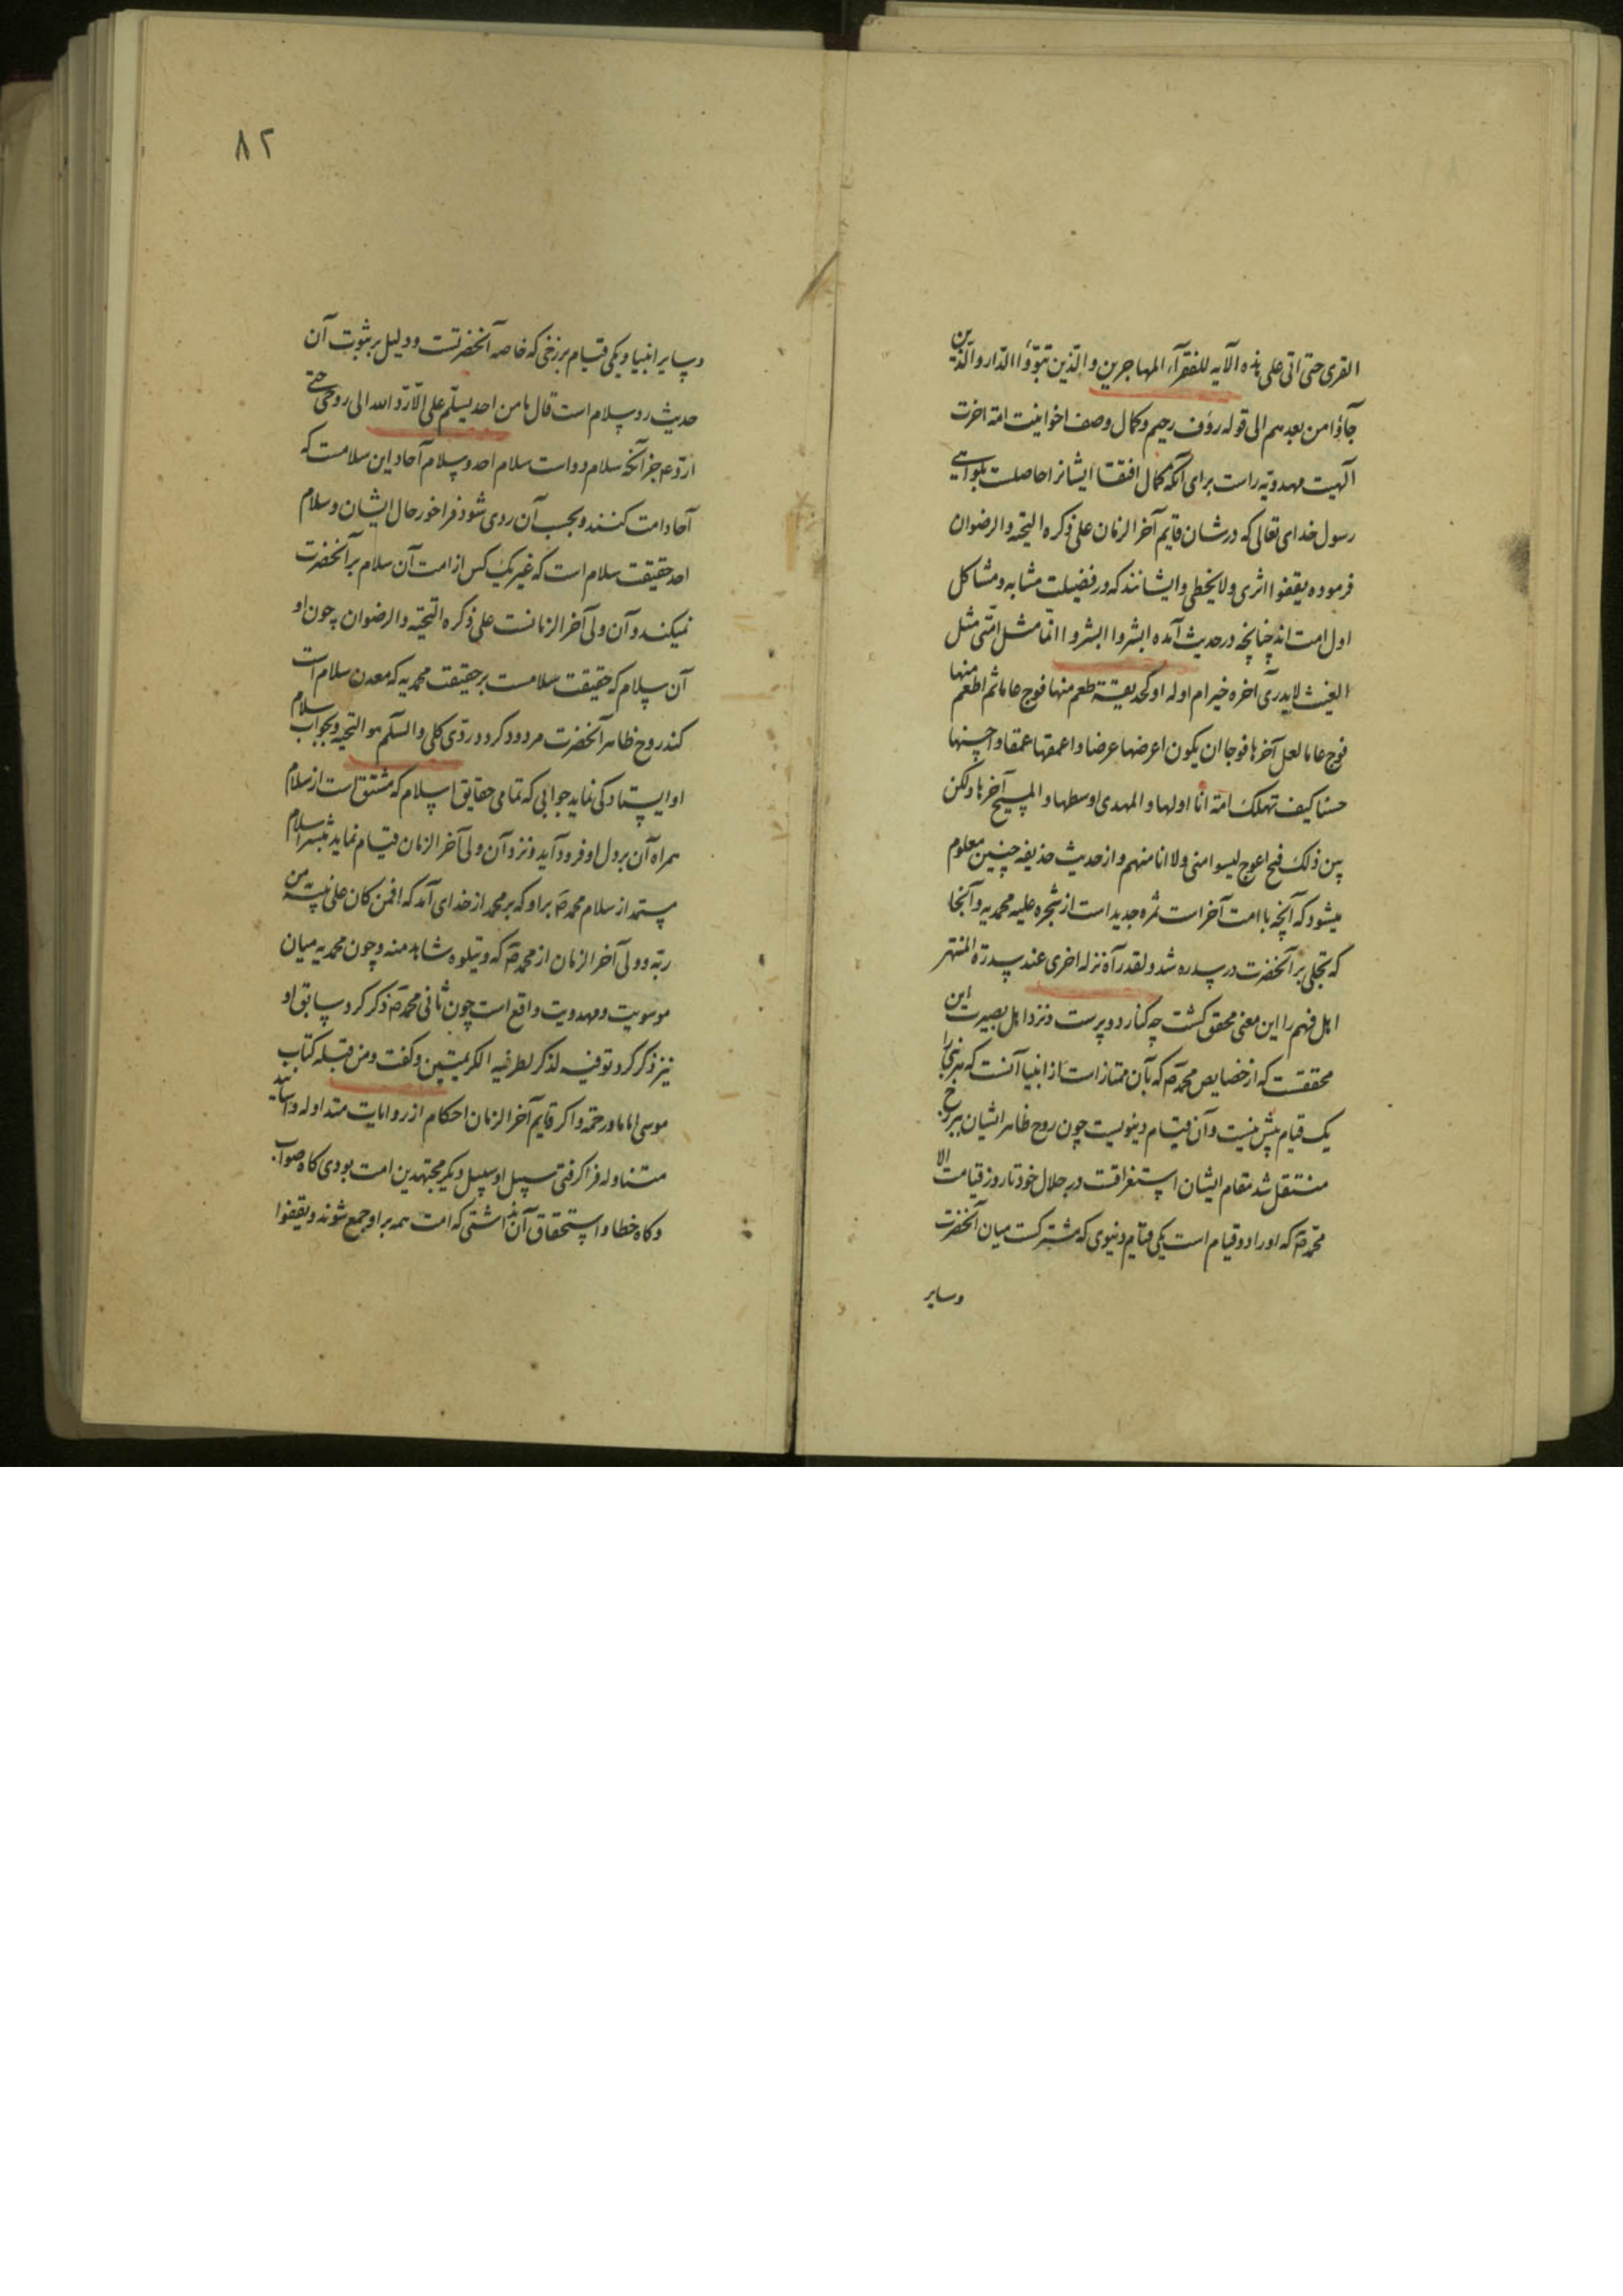 القری حتی اتی علی هذه الآیه للفقرآء المهاجرین والذین تبوّؤا الدّار والّذین
جآؤا من بعدهم الی قوله رؤف رحیم وکمال وصف اخوانیت امة اخرت
آلهیت مهدویه راست برای آنکه کمال افتقا ایشانرا حاصلست بگواهی
رسول خدای تعالی که درشان قایم آخر الزمان علی ذکره التحیه والرضوان
فرموده یقفوا اثری ولا یخطی وایشانند که در فضیلت مشابه ومشاکل
اول امت اند چنانچه در حدیث آمده ابشروا ابشروا انّما مثل امّتی مثل
الغیث لا یدری آخره خیر ام اوله او کحدیقة طعم منها فوج عاما ثم اطعم منها
فوج عاما لعل آخرها فوجا ان یکون اعرضها عرضا واعمقها عمقا واحسنها
حسنا کیف تهلک امة انا اولها والمهدی اوسطها والمسیح آخرها ولکن
بین ذلک فیح اعوج لیسوا منی ولا انا منهم واز حدیث حذیفه چنین معلوم
میشود که آنچه با امت آخر است ثمره جدید است از شجره علیه محمدیه وآنجا
که تجلی بر آنحضرت در سدره شد ولقد رآه نزلة اخری عند سدرة المنتهی
اهل فهم را این معنی محقق کشت چه کنار دو پرست ونزد اهل بصیرت این
محققست که از خصایص محمد صم که بآن ممتاز است از انبیا آنست که هر نبی را
یک قیام پیش نیست وآن قیام دنیویست چون روح ظاهر ایشان ببرزخ
منتقل شد مقام ایشان استغراقست در جلال خود تا روز قیامت الا
محمد صم که اورا دو قیام است یکی قیام دنیوی که مشترکست میان آنحضرت
وسایر
۸۲
وسایر انبیا ویکی قیام برزخی که خاصه آنحضرتست ودلیل بر ثبوت آن
حدیث رد سلام است قال ما من احد یسلّم علی الّا ردّ الله الی روحی حتی
اردّ عم جز آنکه سلام دو است سلام احد وسلام آحاد این سلامست که
آحاد امت کنند وبحسب آن ردی شود فراخور حال ایشان وسلام
احد حقیقت سلام است که غیر یک کس از امت آن سلام بر آنحضرت
نمیکند وآن ولی آخر الزمانست علی ذکره التحیّة والرضوان چون او
آن سلام که حقیقت سلامست بر حقیقت محمدیه که معدن سلام است
کند روح ظاهر آنحضرت مردود کردد ردّی کلی والسلم هو التحیه وبجواب سلام
او ایستادکی نماید جوابی که تمامی حقایق اسلام که مشتق است از سلام
همراه آن بر دل او فرود آید ونزد آن ولی آخر الزمان قیام نماید بنشر اسلام
مستمد از سلام محمد صم بر او که بر محمد از خدای آمد که افمن کان علی بینه من
ربه وولی آخر الزمان از محمد صم که ویتلوه شاهد منه وچون محمدیه میان
موسویت ومهدویت واقع است چون ثانی محمد صم ذکر کرد سابق او
نیز ذکر کرد توفیه لذکر لطرفیه الکریمتین وکفت ومن قبله کتاب
موسی اماما ورحمة واکر قایم آخر الزمان احکام از روایات متداوله واسانید
متناوله فرا کرفتی سبیل او سبیل دیکر مجتهدین امت بودی کاه صواب
وکاه خطا واستحقاق آن نداشتی که امت همه بر او جمع شوند ویقفوا